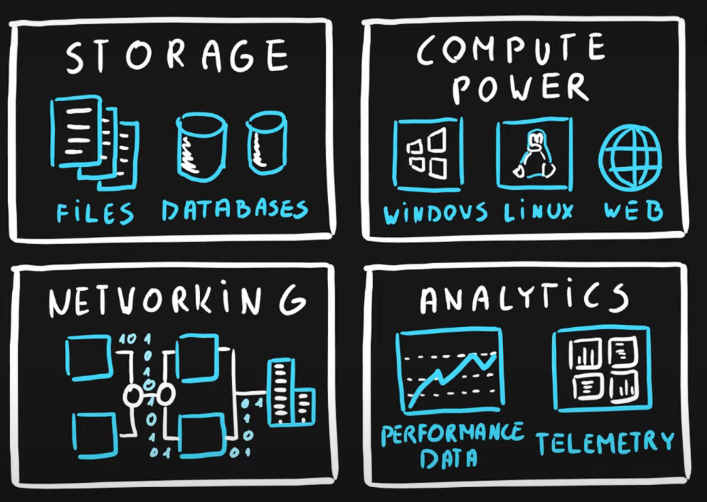 STORAGE
FILES DATABASES
COMPUTE
POWER
WINDOWS LINUX WEB
NETWORKING
10
0
1
0
1
0
1
0
1
0
1
0
1
0
1
01
0
1
01
ANALYTICS
PERFORMANCE
DATA
TELEMETRY